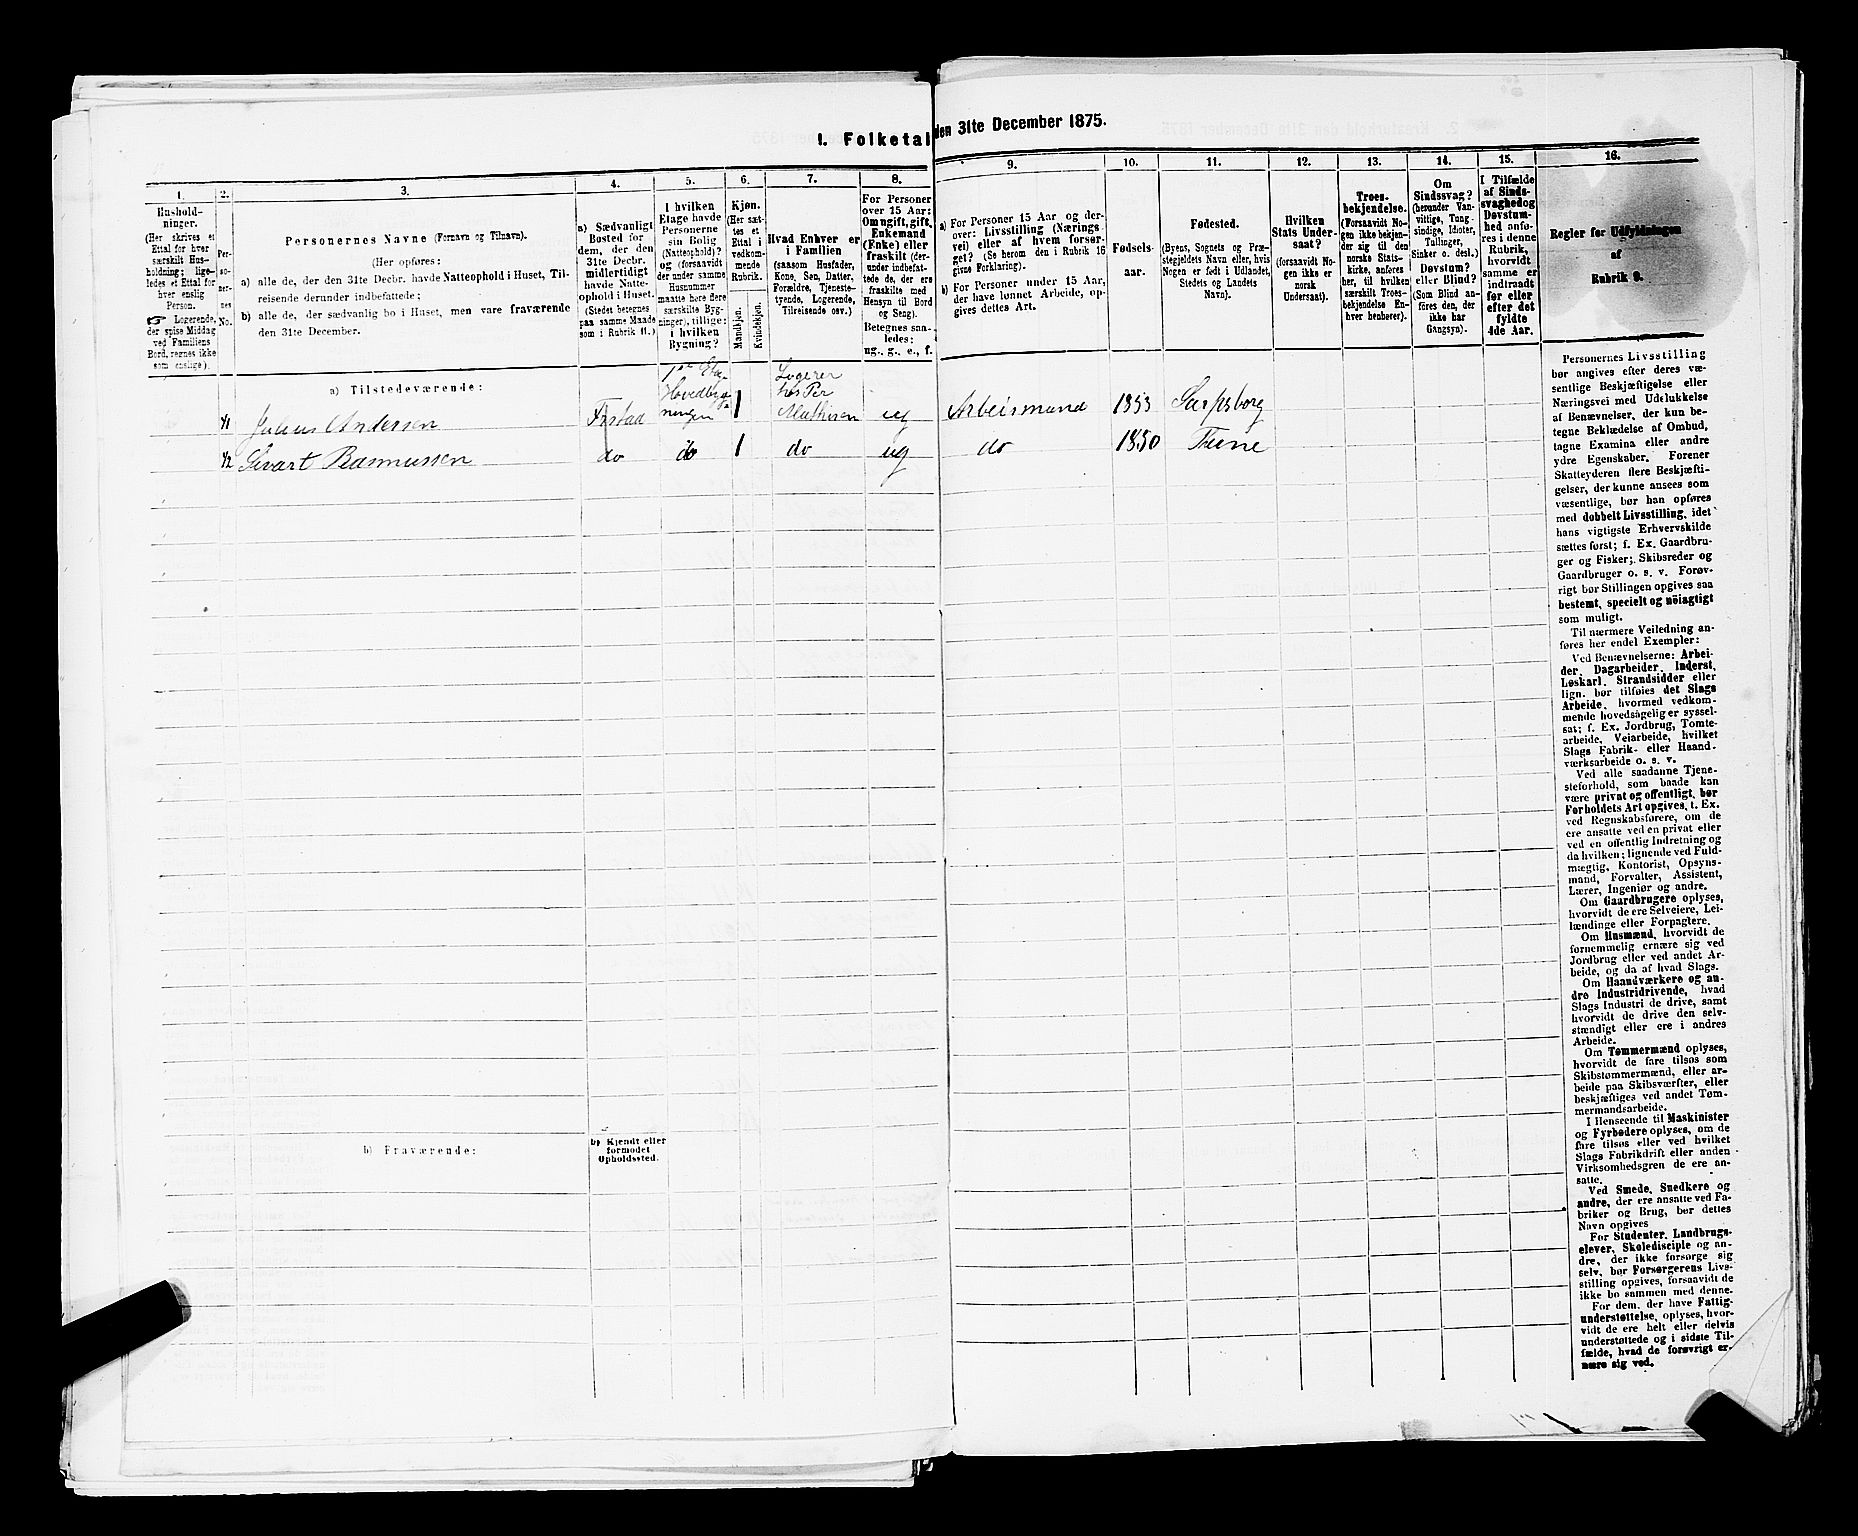 1. Folketal den 31te December 1875.
1. 2. 3. 4. 5. 6. 7. 8. 9. 10. 11. 12. 13. 14. 15. 16.
Hushold-
ninger.
(Her skrives et
Ettal for hver
særskilt Hus-
holdning; lige-
ledes et Ettal for
hver enslig
Person.
☞ Logerende,
der spise Middag
ved Familiens
Bord, regnes ikke
som enslige).
Per-
so-
ner-
nes
No.
Personernes Navne (Fornavn og Tilnavn).
(Her opføres:
a) alle de, der den 31te Decbr. havde Natteophold i Huset, Til-
reisende derunder indbefattede;
b) alle de, der sædvanlig bo i Huset, men vare fraværende
den 31te December.
a) Sædvanligt
Bosted for
dem, der den
31te Decbr.
midlertidigt
havde Natte-
ophold i Huset.
(Stedet betegnes
paa samme Maade
som i Rubrik 11.)
I hvilken
Etage havde
Personerne
sin Bolig
(Natteophold)?
og (forsaavidt
der under samme
Husnummer
maatte høre flere
særskilte Byg-
ninger), tillige:
i hvilken
Bygning?
Kjøn.
(Her sæt-
tes et
Ettal i
vedkom-
mende
Rubrik.
Mandkjøn.
Kvindekjøn.
Hvad Enhver er
i Familien
(saasom Husfader,
Kone, Søn, Datter,
Forældre, Tjeneste-
tyende, Logerende,
Tilreisende osv.)
For Personer
over 15 Aar:
Om ugift, gift,
Enkemand
(Enke) eller
fraskilt (der-
under indbefat-
tede de, der ere
fraskilte med
Hensyn til Bord
og Seng).
Betegnes saa-
ledes:
ug., g., e., f.
a) For Personer 15 Aar og der-
over: Livsstilling (Nærings-
vei) eller af hvem forsør-
get? (Se herom den i Rubrik 16
givne Forklaring).
b) For Personer under 15 Aar,
der have lønnet Arbeide, op-
gives dettes Art.
Fødsels-
aar.
Fødested.
(Byens, Sognets og Præ-
stegjeldets Navn eller, hvis
Nogen er født i Udlandet,
Stedets og Landets
Navn).
Hvilken
Stats Under-
saat?
(forsaavidt No-
gen ikke er
norsk
Undersaat).
Troes-
bekjendelse.
(Forsaavidt No-
gen ikke bekjen-
der sig til den
norske Stats-
kirke, anføres
her, til hvilken
særskilt Troes-
bekjendelse En-
hver henhører).
Om
Sindssvag?
(herunder Van-
vittige, Tung-
sindige, Idioter,
Tullinger,
Sinker o. desl.)
Døvstum?
eller Blind?
(Som Blind an-
føres den, der
ikke har
Gangsyn).
I Tilfælde
af Sinds-
svaghed og
Døvstum-
hed anfø-
res i denne
Rubrik,
hvorvidt
samme er
indtraadt
før eller
efter det
fyldte
4de Aar.
Regler for Udfyldningen
af
Rubrik 9.
a) Tilstedeværende:
1 Andersen Frstad 1ste Eta- Hovedbyg- ningen 1 Logerer hos Per Mathisen ug Arbeismand 1853 Sarpsborg
2 Sivart Rasmussen do do 1 do ug do 1850 Thune
b) Fraværende:
b) Kjendt eller
formodet
Opholdssted.
Personernes Livsstilling
bør angives efter deres væ-
sentlige Beskjæftigelse eller
Næringsvei med Udelukkelse
af Benævnelser, der kun be-
tegne Beklædelse af Ombud,
tagne Examina eller andre
ydre Egenskaber. Forener
Skatteyderen flere Beskjæfti-
gelser, der kunne ansees som
væsentlige, bør han opføres
med dobbelt Livsstilling, idet
hans vigtigste Erhvervskilde
sættes først; f. Ex. Gaardbru-
ger og Fisker; Skibsreder og
Gaardbruger o. s. v. Forøv-
rigt bør Stillingen opgives saa
bestemt, specielt og nöiagtigt
som muligt.
Til nærmere Veiledning an-
føres her endel Exempler:
Ved Benævnelserne: Arbei-
der, Dagarbeider, Inderst,
Løskarl, Strandsidder eller
lign. bør tilføies det Slags
Arbeide, hvormed vedkom-
mende hovedsagelig er syssel-
sat; f. Ex. Jordbrug, Tomte-
arbeide, Veiarbeide, hvilket
Slags Fabrik- eller Haand-
værksarbeide o. s. v.
Ved alle saadanne Tjene-
steforhold, som baade kan
være privat og offentligt, bør
Forholdets Art opgives, t. Ex.
ved Regnskabsførere, om de
ere ansatte ved en privat eller
ved en offentlig Indretning og
da hvilken; lignende ved Fuld-
mægtig, Kontorist, Opsyns-
mand, Forvalter, Assistent,
Lærer, Ingeniør og andre.
Om Gaardbrugere oplyses,
hvorvidt de ere Selveiere, Lei-
lændinge eller Forpagtere.
Om Husmænd, hvorvidt de
fornemmelig ernære sig ved
Jordbrug eller ved andet Ar-
beide, og da af hvad Slags.
Om Haandværkere og an-
dre Industridrivende, hvad
Slags Industri de drive, samt
hvorvidt de drive den selv-
stændigt eller ere i andres
Arbeide.
Om Tømmermænd oplyses,
hvorvidt de fare tilsøs som
Skibstømmermænd, eller ar-
beide paa Skibsværfter, eller
beskjæftiges ved andet Tøm-
mermandsarbeide.
I Henseende til Maskinister
og Fyrbødere oplyses, om de
fare tilsøs eller ved hvilket
Slags Fabrikdrift eller anden
Virksomhedsgren de ere an-
satte.
Ved Smede, Snedkere og
andre, der ere ansatte ved Fa-
briker og Brug, bør dettes
Navn opgives
For Studenter, Landbrugs-
elever, Skoledisciple og an-
dre, der ikke forsørge sig
selv, bør Forsørgerens Livs-
stilling opgives, forsaavidt de
ikke bo sammen med denne.
For dem, der have Fattig-
understøttelse, oplyses, hvor-
vidt de ere helt eller delvis
understøttede og i sidste Til-
fælde, hvad de forøvrigt er-
nære sig ved.